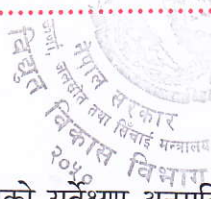 नेपाल सरकार
ऊर्जा, जलस्रोत तथा सिंचाई मन्त्रालय
विद्युत विकास विभाग
२०५०
को सर्वेक्षण अनुमति